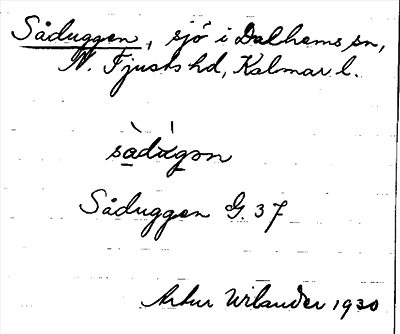 Såduggen, sjö i Dalhems sn,
N. Tjusts hd, Kalmar l.
Såduggen G. 37
Artur Wilander 1930